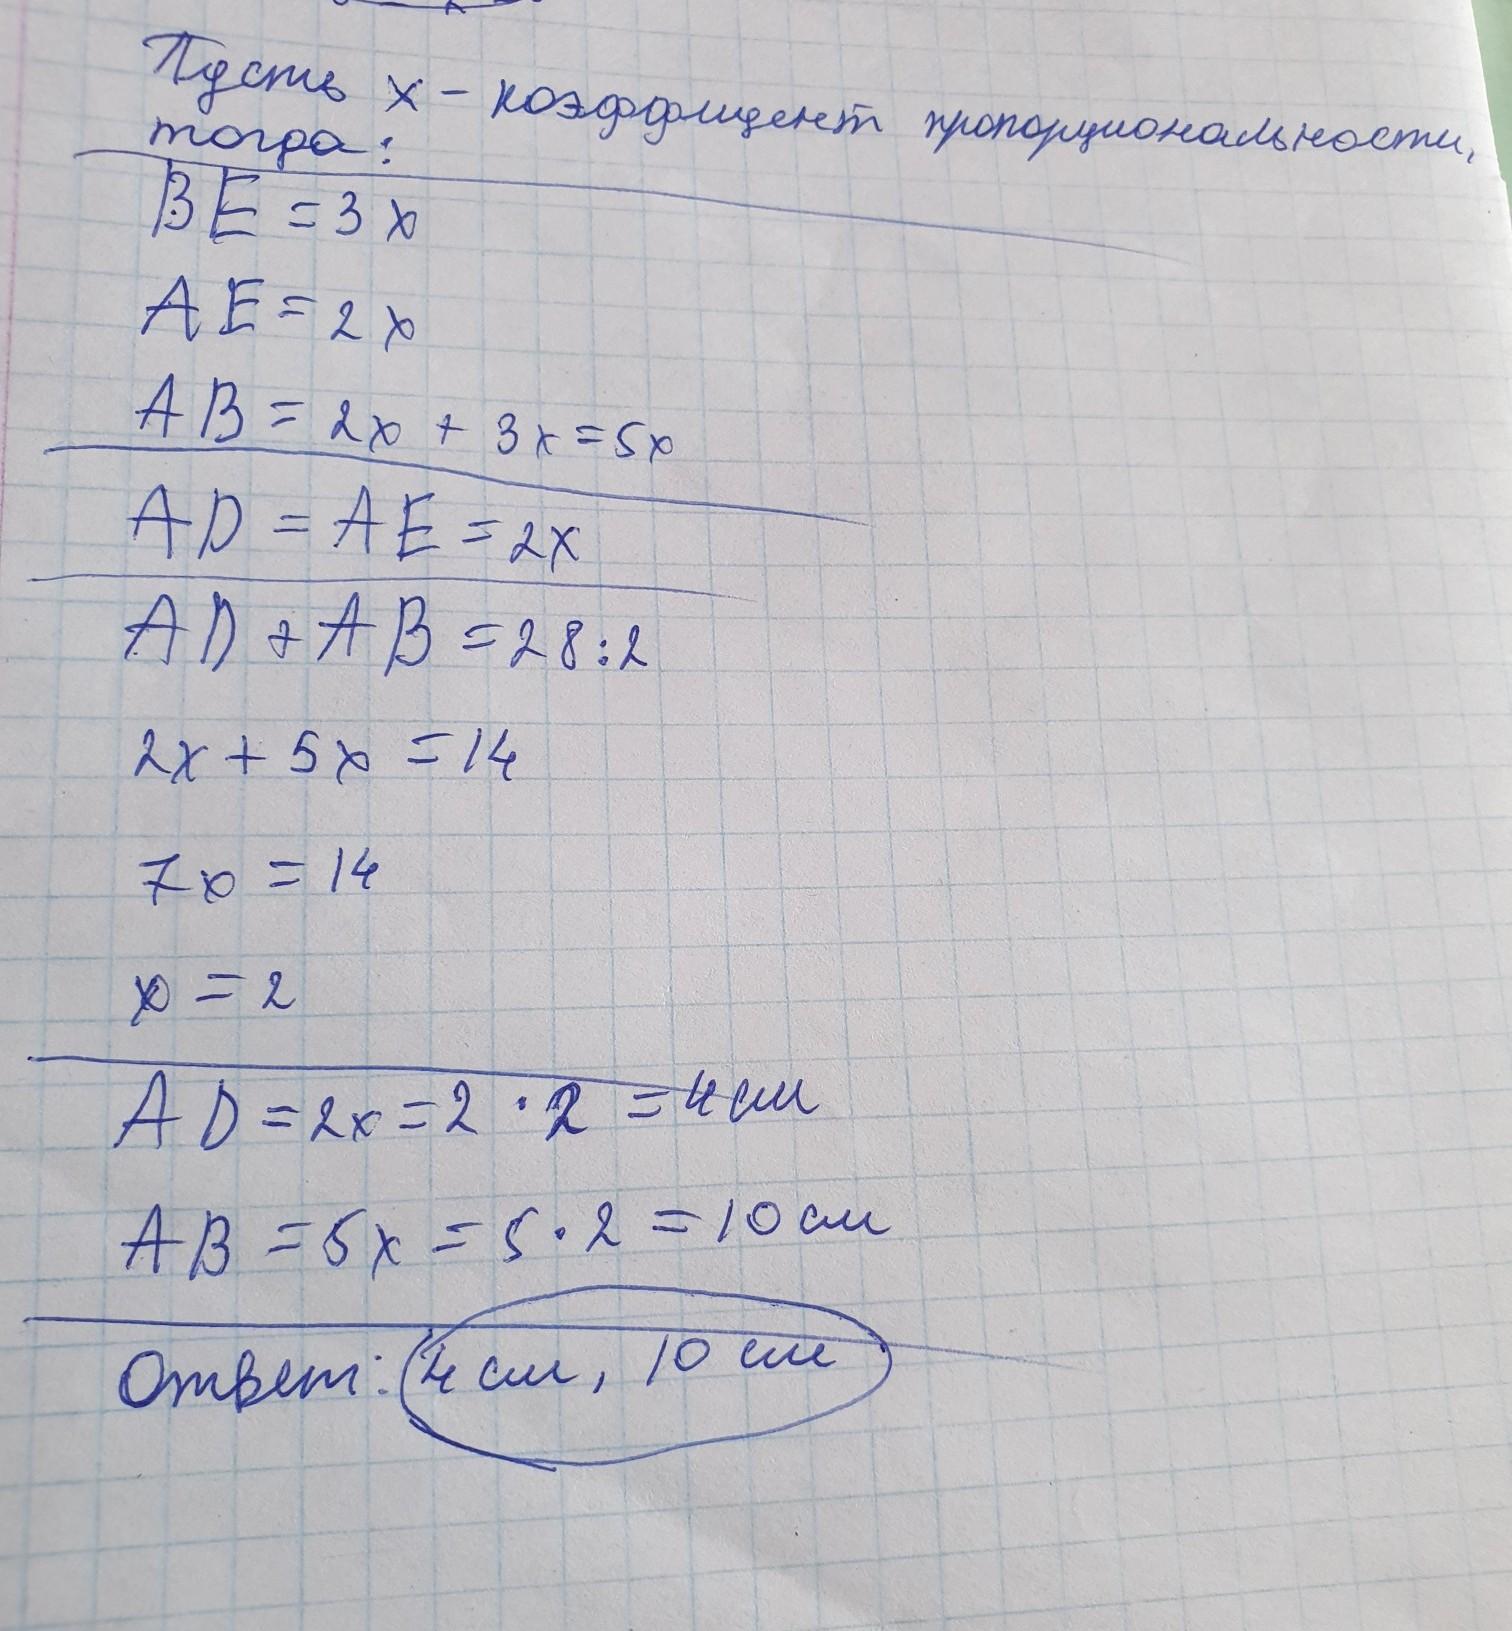 Пусть x - коэффициент пропорциональности,
тогда:
BE = 3x
AE = 2x
AB = 2x + 3x = 5x
AD = AE = 2x
AD + AB = 28:2
2x + 5x = 14
7x = 14
x = 2
AD = 2x = 2 · 2 = 4 см
AB = 5x = 5 · 2 = 10 см
Ответ: 4 см, 10 см